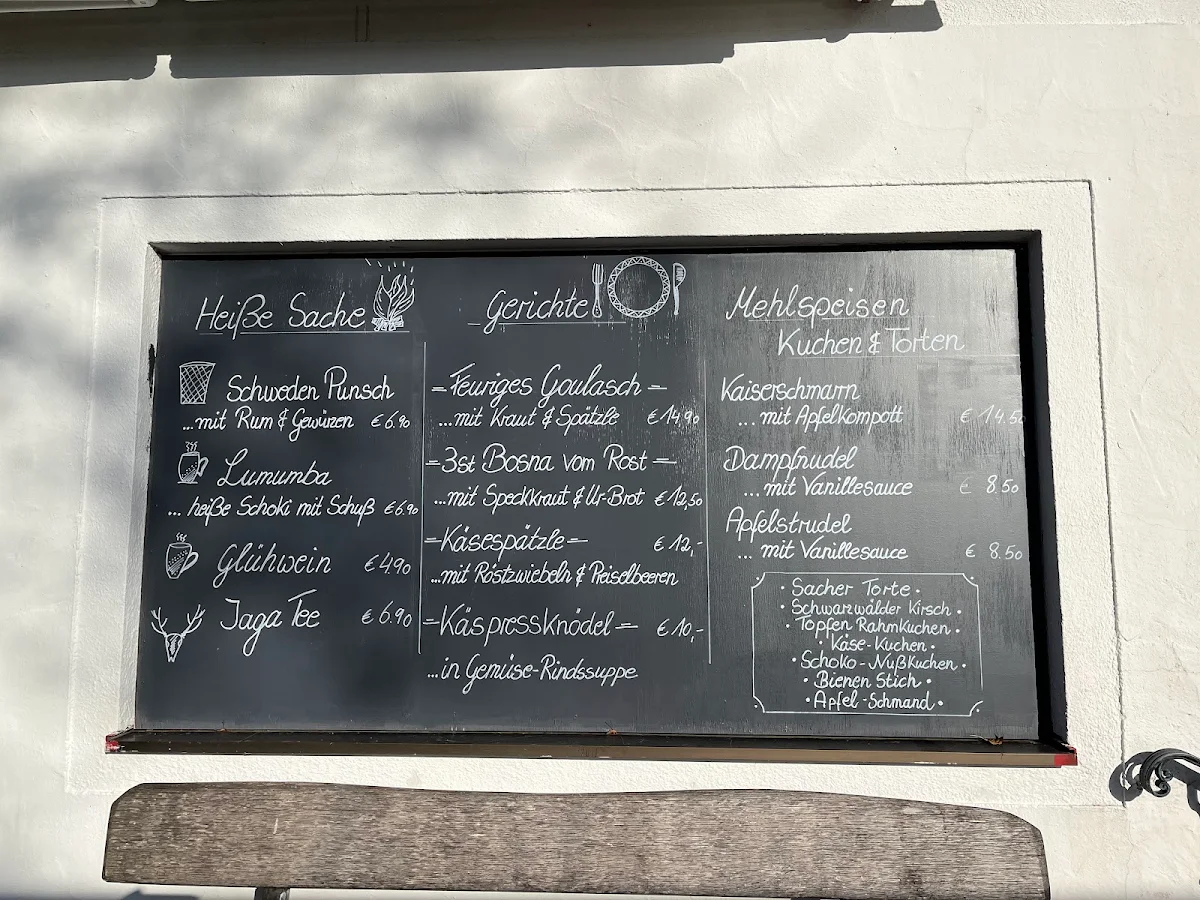 Heiße Sache
Schweden Punsch
...mit Rum & Gewürzen € 6.90
Lumumba
... heiße Schoki mit Schuß € 6.90
Glühwein € 4.90
Jaga Tee € 6.90
Gerichte
- Feuriges Goulasch -
...mit Kraut & Spätzle € 14,90
- 3st Bosna vom Rost -
...mit Speckkraut & Ur-Brot € 12,50
- Käsespätzle - € 12,-
...mit Röstzwiebeln & Preiselbeeren
- Käspressknödel - € 10,-
...in Gemüse-Rindssuppe
Mehlspeisen
Kuchen & Torten
Kaiserschmarrn
... mit Apfelkompott € 14.50
Dampfnudel
... mit Vanillesauce € 8.50
Apfelstrudel
... mit Vanillesauce € 8.50
• Sacher Torte •
• Schwarzwälder Kirsch •
• Topfen Rahmkuchen •
• Käse-Kuchen •
• Schoko-Nußkuchen •
• Bienen Stich •
• Apfel-Schmand •